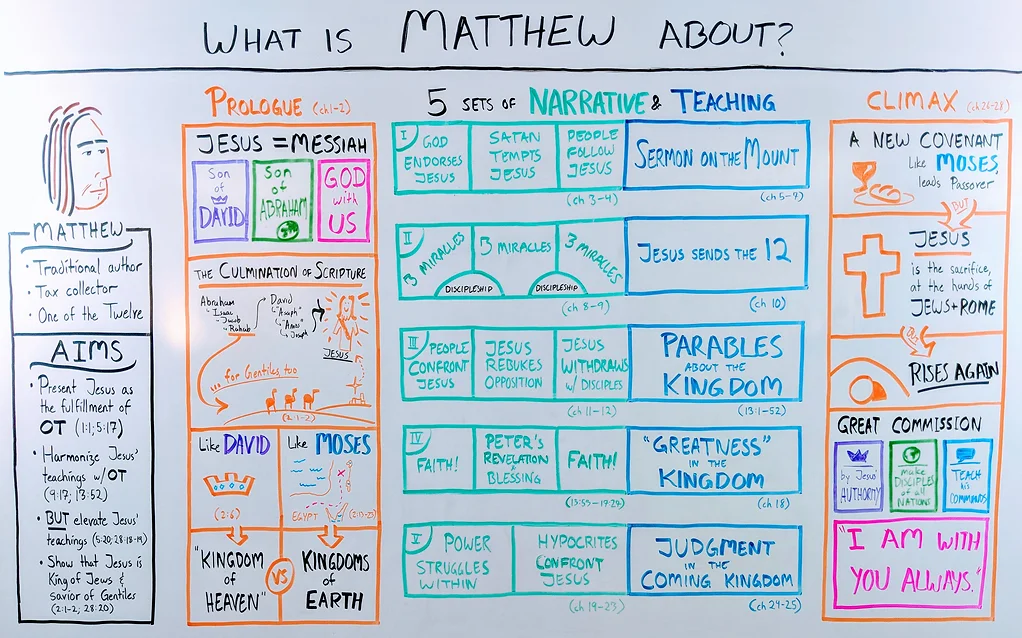 WHAT IS MATTHEW ABOUT?
MATTHEW
• Traditional author
• Tax collector
• One of the Twelve
AIMS
• Present Jesus as
the fulfillment of
OT (1:1; 5:17)
• Harmonize Jesus'
teachings w/OT
(9:17; 13:52)
• BUT elevate Jesus'
teachings (5:20; 28:18-19)
• Show that Jesus is
King of Jews &
savior of Gentiles
(2:1-2; 28:20)
PROLOGUE (ch1-2)
JESUS = MESSIAH
Son
of
DAVID
Son
of
ABRAHAM
GOD
with
US
THE CULMINATION OF SCRIPTURE
Abraham
Isaac
Jacob
Rahab
David
"Asaph"
"Amos"
Joseph
JESUS
... for Gentiles too
(2:1-2)
Like DAVID
(2:6)
Like MOSES
EGYPT
(2:13-23)
"KINGDOM
of
HEAVEN"
VS
KINGDOMS
of
EARTH
5 SETS OF NARRATIVE & TEACHING
I
GOD
ENDORSES
JESUS
SATAN
TEMPTS
JESUS
PEOPLE
FOLLOW
JESUS
(ch 3-4)
SERMON ON THE MOUNT
(ch 5-7)
II
3 MIRACLES
3 MIRACLES
3 MIRACLES
DISCIPLESHIP
DISCIPLESHIP
(ch 8-9)
JESUS SENDS THE 12
(ch 10)
III
PEOPLE
CONFRONT
JESUS
JESUS
REBUKES
OPPOSITION
JESUS
WITHDRAWS
w/ DISCIPLES
(ch 11-12)
PARABLES
ABOUT THE
KINGDOM
(13:1-52)
IV
FAITH!
PETER'S
REVELATION
&
BLESSING
FAITH!
(13:53-17:27)
"GREATNESS"
IN THE
KINGDOM
(ch 18)
V
POWER
STRUGGLES
WITHIN
HYPOCRITES
CONFRONT
JESUS
(ch 19-23)
JUDGMENT
IN THE
COMING KINGDOM
(ch 24-25)
CLIMAX (ch 26-28)
A NEW COVENANT
Like MOSES,
leads Passover
BUT
JESUS
is the sacrifice,
at the hands of
JEWS + ROME
BUT
RISES AGAIN
GREAT COMMISSION
by Jesus'
AUTHORITY
make
DISCIPLES
of all
NATIONS
TEACH
his
COMMANDS
"I AM WITH
YOU ALWAYS."